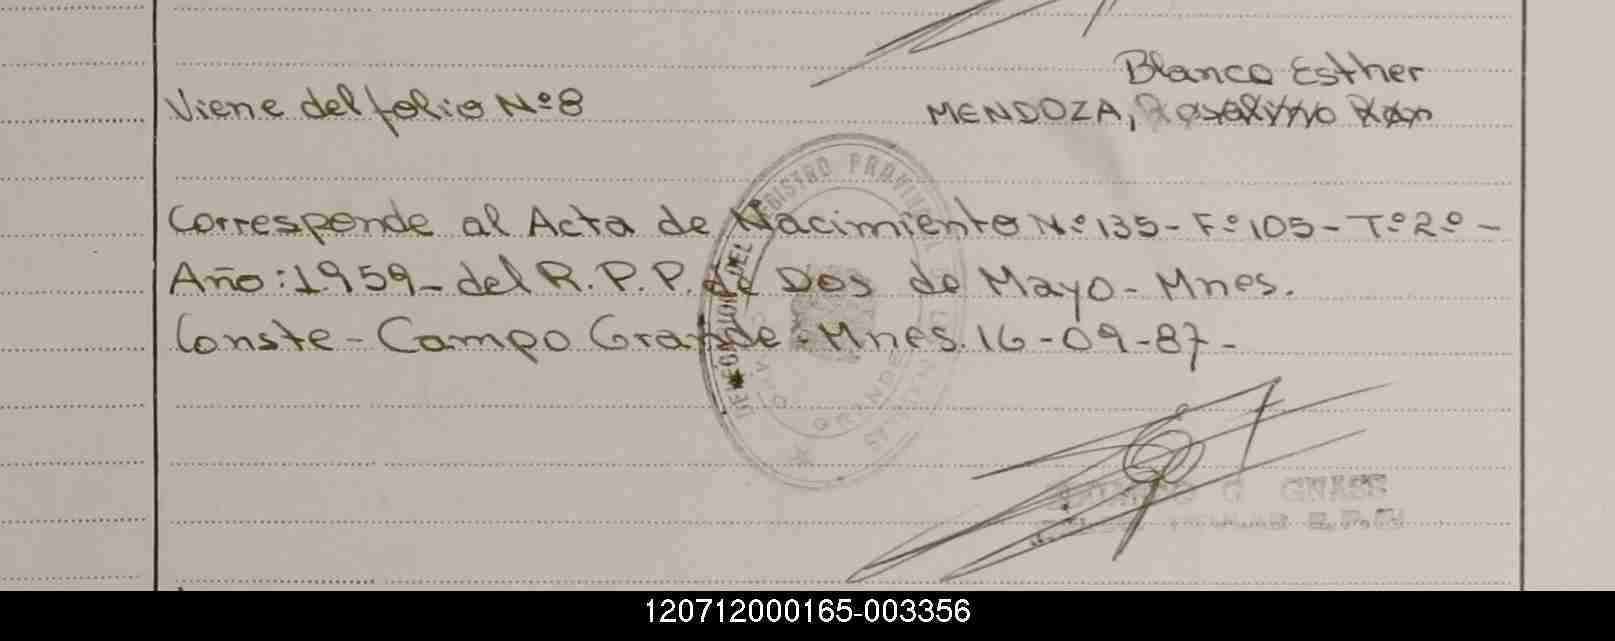 Blanca Esther
Viene del folio Nº 8 MENDOZA,
Corresponde al Acta de Nacimiento Nº 135- Fº 105- Tº 2º -
Año: 1.959- del R.P.P. de Dos de Mayo- Mnes.
Conste- Campo Grande- Mnes. 16-09-87-
DELEGACION DEL REGISTRO PROVINCIAL
GRANDE
120712000165-003356